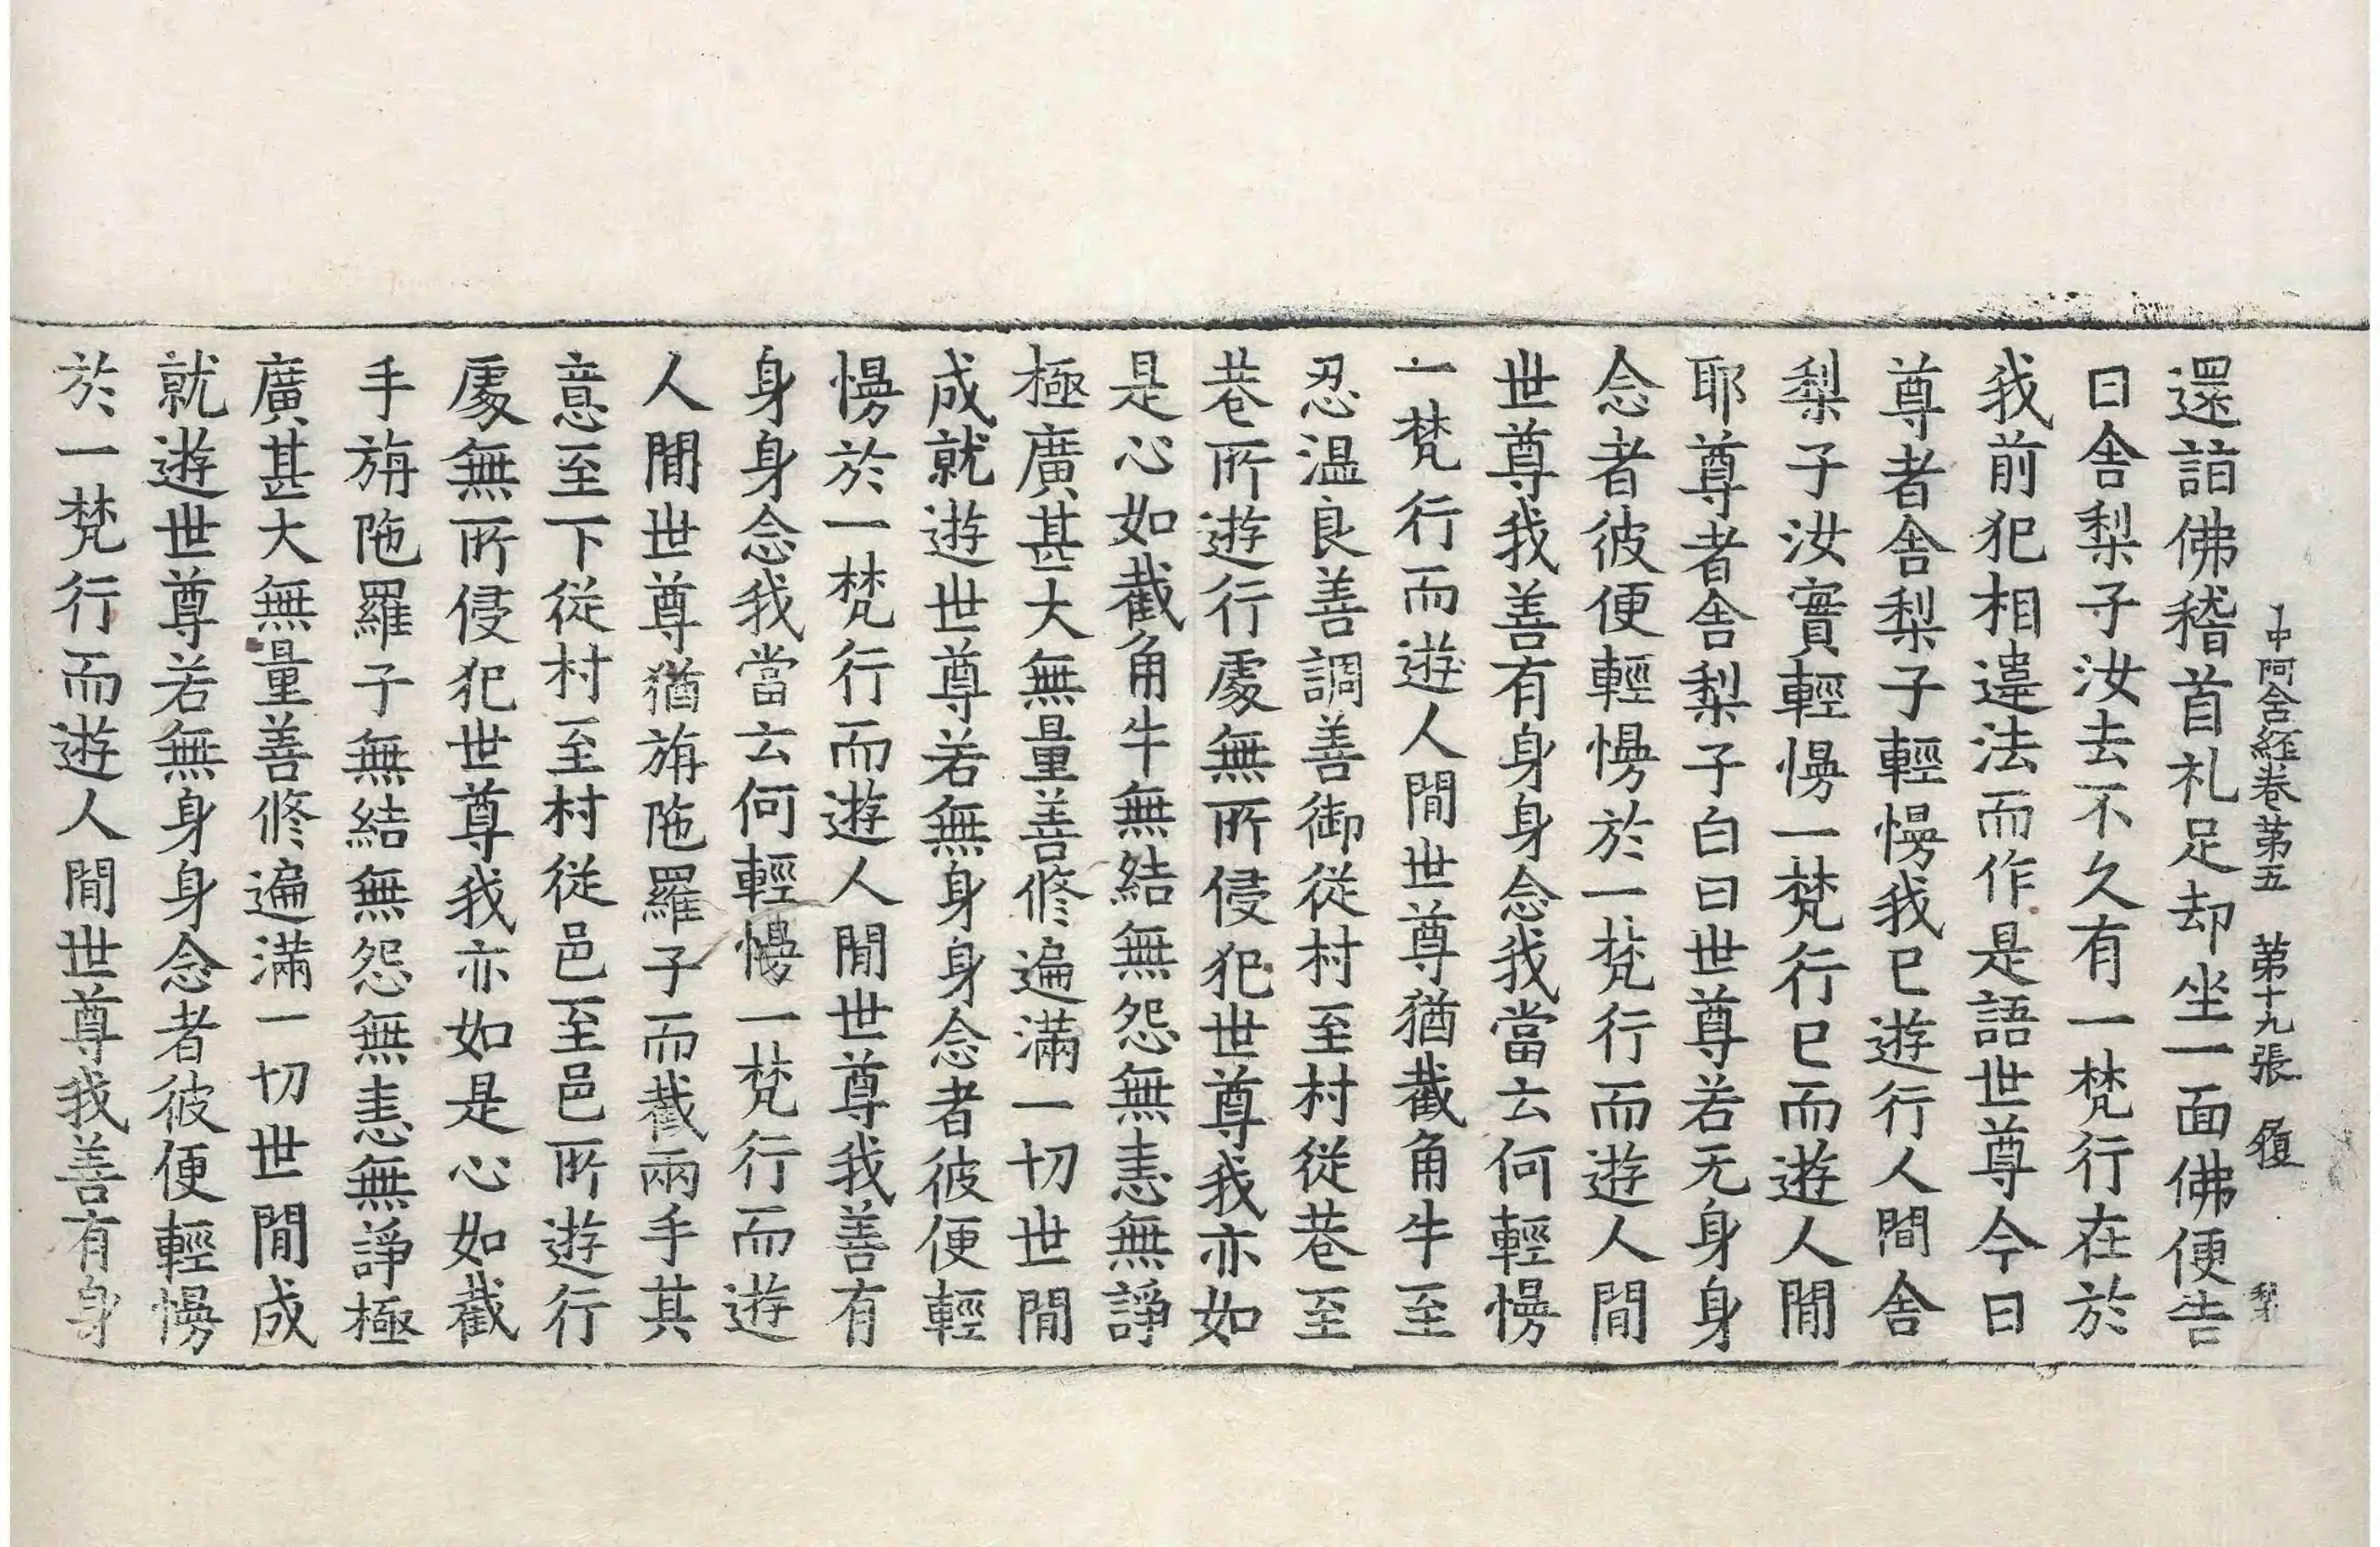 中阿含経卷第五 第十九張 履
還詣佛稽首礼足却坐一面佛便告
曰舍梨子汝去不久有一梵行在於
我前犯相違法而作是語世尊今日
尊者舍梨子輕慢我已遊行人間舍
梨子汝實輕慢一梵行已而遊人間
耶尊者舍梨子白曰世尊若无身身
念者彼便輕慢於一梵行而遊人間
世尊我善有身身念我當云何輕慢
一梵行而遊人間世尊猶截角牛至
忍温良善調善御従村至村従巷至
巷所遊行處無所侵犯世尊我亦如
是心如截角牛無結無怨無恚無諍
極廣甚大無量善修遍滿一切世間
成就遊世尊若無身身念者彼便輕
慢於一梵行而遊人間世尊我善有
身身念我當云何輕慢一梵行而遊
人間世尊猶旃陁羅子而截兩手其
意至下従村至村従邑至邑所遊行
處無所侵犯世尊我亦如是心如截
手旃陁羅子無結無怨無恚無諍極
廣甚大無量善修遍滿一切世間成
就遊世尊若無身身念者彼便輕慢
於一梵行而遊人間世尊我善有身